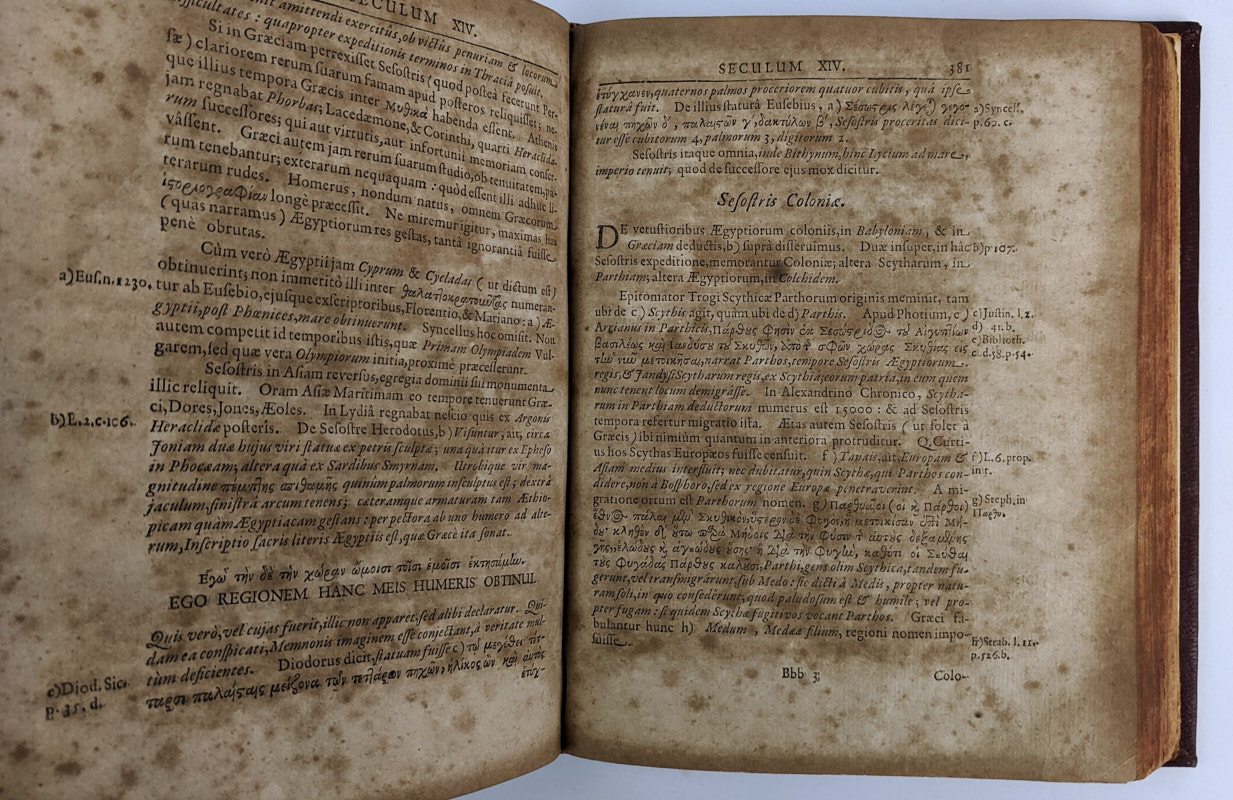 SECULUM XIV.
amittendi exercitûs, ob victûs penuriam & locorum
difficultates: quapropter expeditionis terminos in Thraciâ posuit.
Si in Græciam perrexiſſet Seſoſtris (quod poſteà fecerunt Per-
ſæ) clariorem rerum ſuarum famam apud poſteros reliquiſſet; ne-
que illius tempora Græcis inter Μυθικὰ habenda eſſent. Athenis
jam regnabat Phorbas; Lacedæmone, & Corinthi, quarti Heraclida-
rum ſucceſſores; qui aut virtutis, aut infortunii memoriam conſer-
vâſſent. Græci autem jam rerum ſuarum ſtudio, ob tenuitatem, pa-
rum tenebantur; exterarum nequaquam: quòd eſſent illi adhuc li-
terarum rudes. Homerus, nondum natus, omnem Græcorum
ἱςοριογραφίαν longè præceſſit. Ne miremur igitur, maximas has
(quas narramus) Ægyptiorum res geſtas, tantâ ignorantiâ fuiſſe
penè obrutas.
Cùm verò Ægyptii jam Cyprum & Cycladas (ut dictum eſt)
obtinuerint; non immeritò illi inter θαλατ]οκρατούντας numeran-
a) Euſ. n. 1230. tur ab Euſebio, ejuſque exſcriptoribus, Florentio, & Mariano: a) Æ-
gyptii, poſt Phœnices, mare obtinuerunt. Syncellus hoc omiſit. Non
autem competit id temporibus iſtis, quæ Primam Olympiadem Vul-
garem, ſed quæ vera Olympiorum initia, proximè præceſſerunt.
Seſoſtris in Aſiam reverſus, egregia dominii ſui monumenta
illic reliquit. Oram Aſiæ Maritimam eo tempore tenuerunt Græ-
ci, Dores, Jones, Æoles. In Lydiâ regnabat neſcio quis ex Argonis
b) L. 2. c. 106. Heraclidæ poſteris. De Seſoſtre Herodotus, b) Viſuntur, ait, circa
Joniam duæ hujus viri ſtatuæ ex petris ſculptæ; una quà itur ex Epheſo
in Phocæam; altera quà ex Sardibus Smyrnam. Utrobique vir ma-
gnitudine πέμπ]ης ϛπιθαμῆς quinûm palmorum inſculptus eſt; dextrâ
jaculum, ſiniſtrâ arcum tenens; cæteramque armaturam tam Æthio-
picam quàm Ægyptiacam geſtans: per pectora ab uno humero ad alte-
rum, Inſcriptio ſacris literis Ægyptiis eſt, quæ Græcè ita ſonat.
Εγὼ τήνδε τὴν χώρην ὤμοισι τοῖσι ἐμοῖσι ἐκτησάμlυ.
EGO REGIONEM HANC MEIS HUMERIS OBTINUI.
Quis verò, vel cujas fuerit, illic non apparet, ſed alibi declaratur. Qui-
dam ea conſpicati, Memnonis imaginem eſſe conjectant, à veritate mul-
tùm deficientes. Diodorus dicit, ſtatuam fuiſſe c) τῷ μεγέθει τέτ-
c) Diod. Sic. p. 35. d. ταρσι παλαιςαῖς μείζονα τῶν τετ]άρων πηχῶν, ἡλίκος ὢν καὶ αὐτὸς
ἐτύγ-
SECULUM XIV. 381
ἐτύγχανεν, quaternos palmos proceriorem quatuor cubitis, quâ ipſe
ſtaturâ fuit. De illius ſtaturâ Euſebius, a) Σέσωςρις λέγε) γεγο- a) Syncell.
νέναι πηχῶν δ', παλαιςῶν γ', δακτύλων β', Seſoſtris proceritas dici- p. 60. c.
tur eſſe cubitorum 4, palmorum 3, digitorum 2.
Seſoſtris itaque omnia, inde Bithynum, hinc Lycium ad mare,
imperio tenuit; quod de ſucceſſore ejus mox dicitur.
Seſoſtris Coloniæ.
DE vetuſtioribus Ægyptiorum coloniis, in Babyloniam, & in
Græciam deductis, b) ſuprà diſſeruimus. Duæ inſuper, in hâc b) p. 107.
Seſoſtris expeditione, memorantur Coloniæ; altera Scytharum, in
Parthiam; altera Ægyptiorum, in Colchidem.
Epitomator Trogi Scythicæ Parthorum originis meminit, tam
ubi de c) Scythis agit, quàm ubi de d) Parthis. Apud Photium, e) c) Juſtin. l. 2.
Arrianus in Parthicis, Πάρθους φησὶν ἐπὶ Σεσώςριδ@ τοῦ Αἰγυπτίων d) 41. b.
βασιλέως καὶ Ιανδύσου τοῦ Σκυθῶν, ἀπὸ τ σφῶν χώρας Σκυθίας εἰς e) Biblioth.
τlὼ νῦν μετοικῆσαι, narrat Parthos, tempore Seſoſtris Ægyptiorum c. d. 58. p. 54.
regis, & Jandyſi Scytharum regis, ex Scythia, eorum patria, in eum quem
nunc tenent locum demigrâſſe. In Alexandrino Chronico, Scytha-
rum in Parthiam deductorum numerus eſt 15000: & ad Seſoſtris
tempora refertur migratio iſta. Ætas autem Seſoſtris (ut ſolet à
Græcis) ibi nimiùm quantum in anteriora protruditur. Q. Curti-
us hos Scythas Europæos fuiſſe cenſuit. f) Tanais, ait, Europam & f) L. 6. prop.
Aſiam medius interfluit; nec dubitatur, quin Scythæ, qui Parthos con- init.
didere, non à Boſphoro, ſed ex regione Europæ penetraverint. A mi-
gratione ortum eſt Parthorum nomen. g) Παρθυαῖοι (οἱ κ Πάρθοι) g) Steph. in
ἔθν@ πάλαι μὲν Σκυθικὸν, ὕςερον δὲ φυγὸν, ἢ μετοικίσαν ἐπὶ Μή- Πάρθυ.
δους κληθὲν δὲ οὕτω παρὰ Μήδοις διὰ τὴν φύσιν τ αὐτοὺς δεξαμένης
γῆς, ἑλώδους κ ἀγκώδους οὔσης· ἢ διὰ τὴν φυγlὼ, καθότι οἱ Σκύθαι
τοὺς φυγάδας Πάρθους καλοῦσι, Parthi, gens olim Scythica, tandem fu-
gerunt, vel tranſmigrârunt, ſub Medo: ſic dicti à Medis, propter natu-
ram ſoli, in quo conſederunt, quod paludoſum eſt & humile; vel pro-
pter fugam: ſiquidem Scythæ fugitivos vocant Parthos. Græci fa-
bulantur hunc h) Medum, Medeæ filium, regioni nomen impo-
ſuiſſe. h) Strab. l. 11.
p. 526. b.
Bbb 3 Colo-